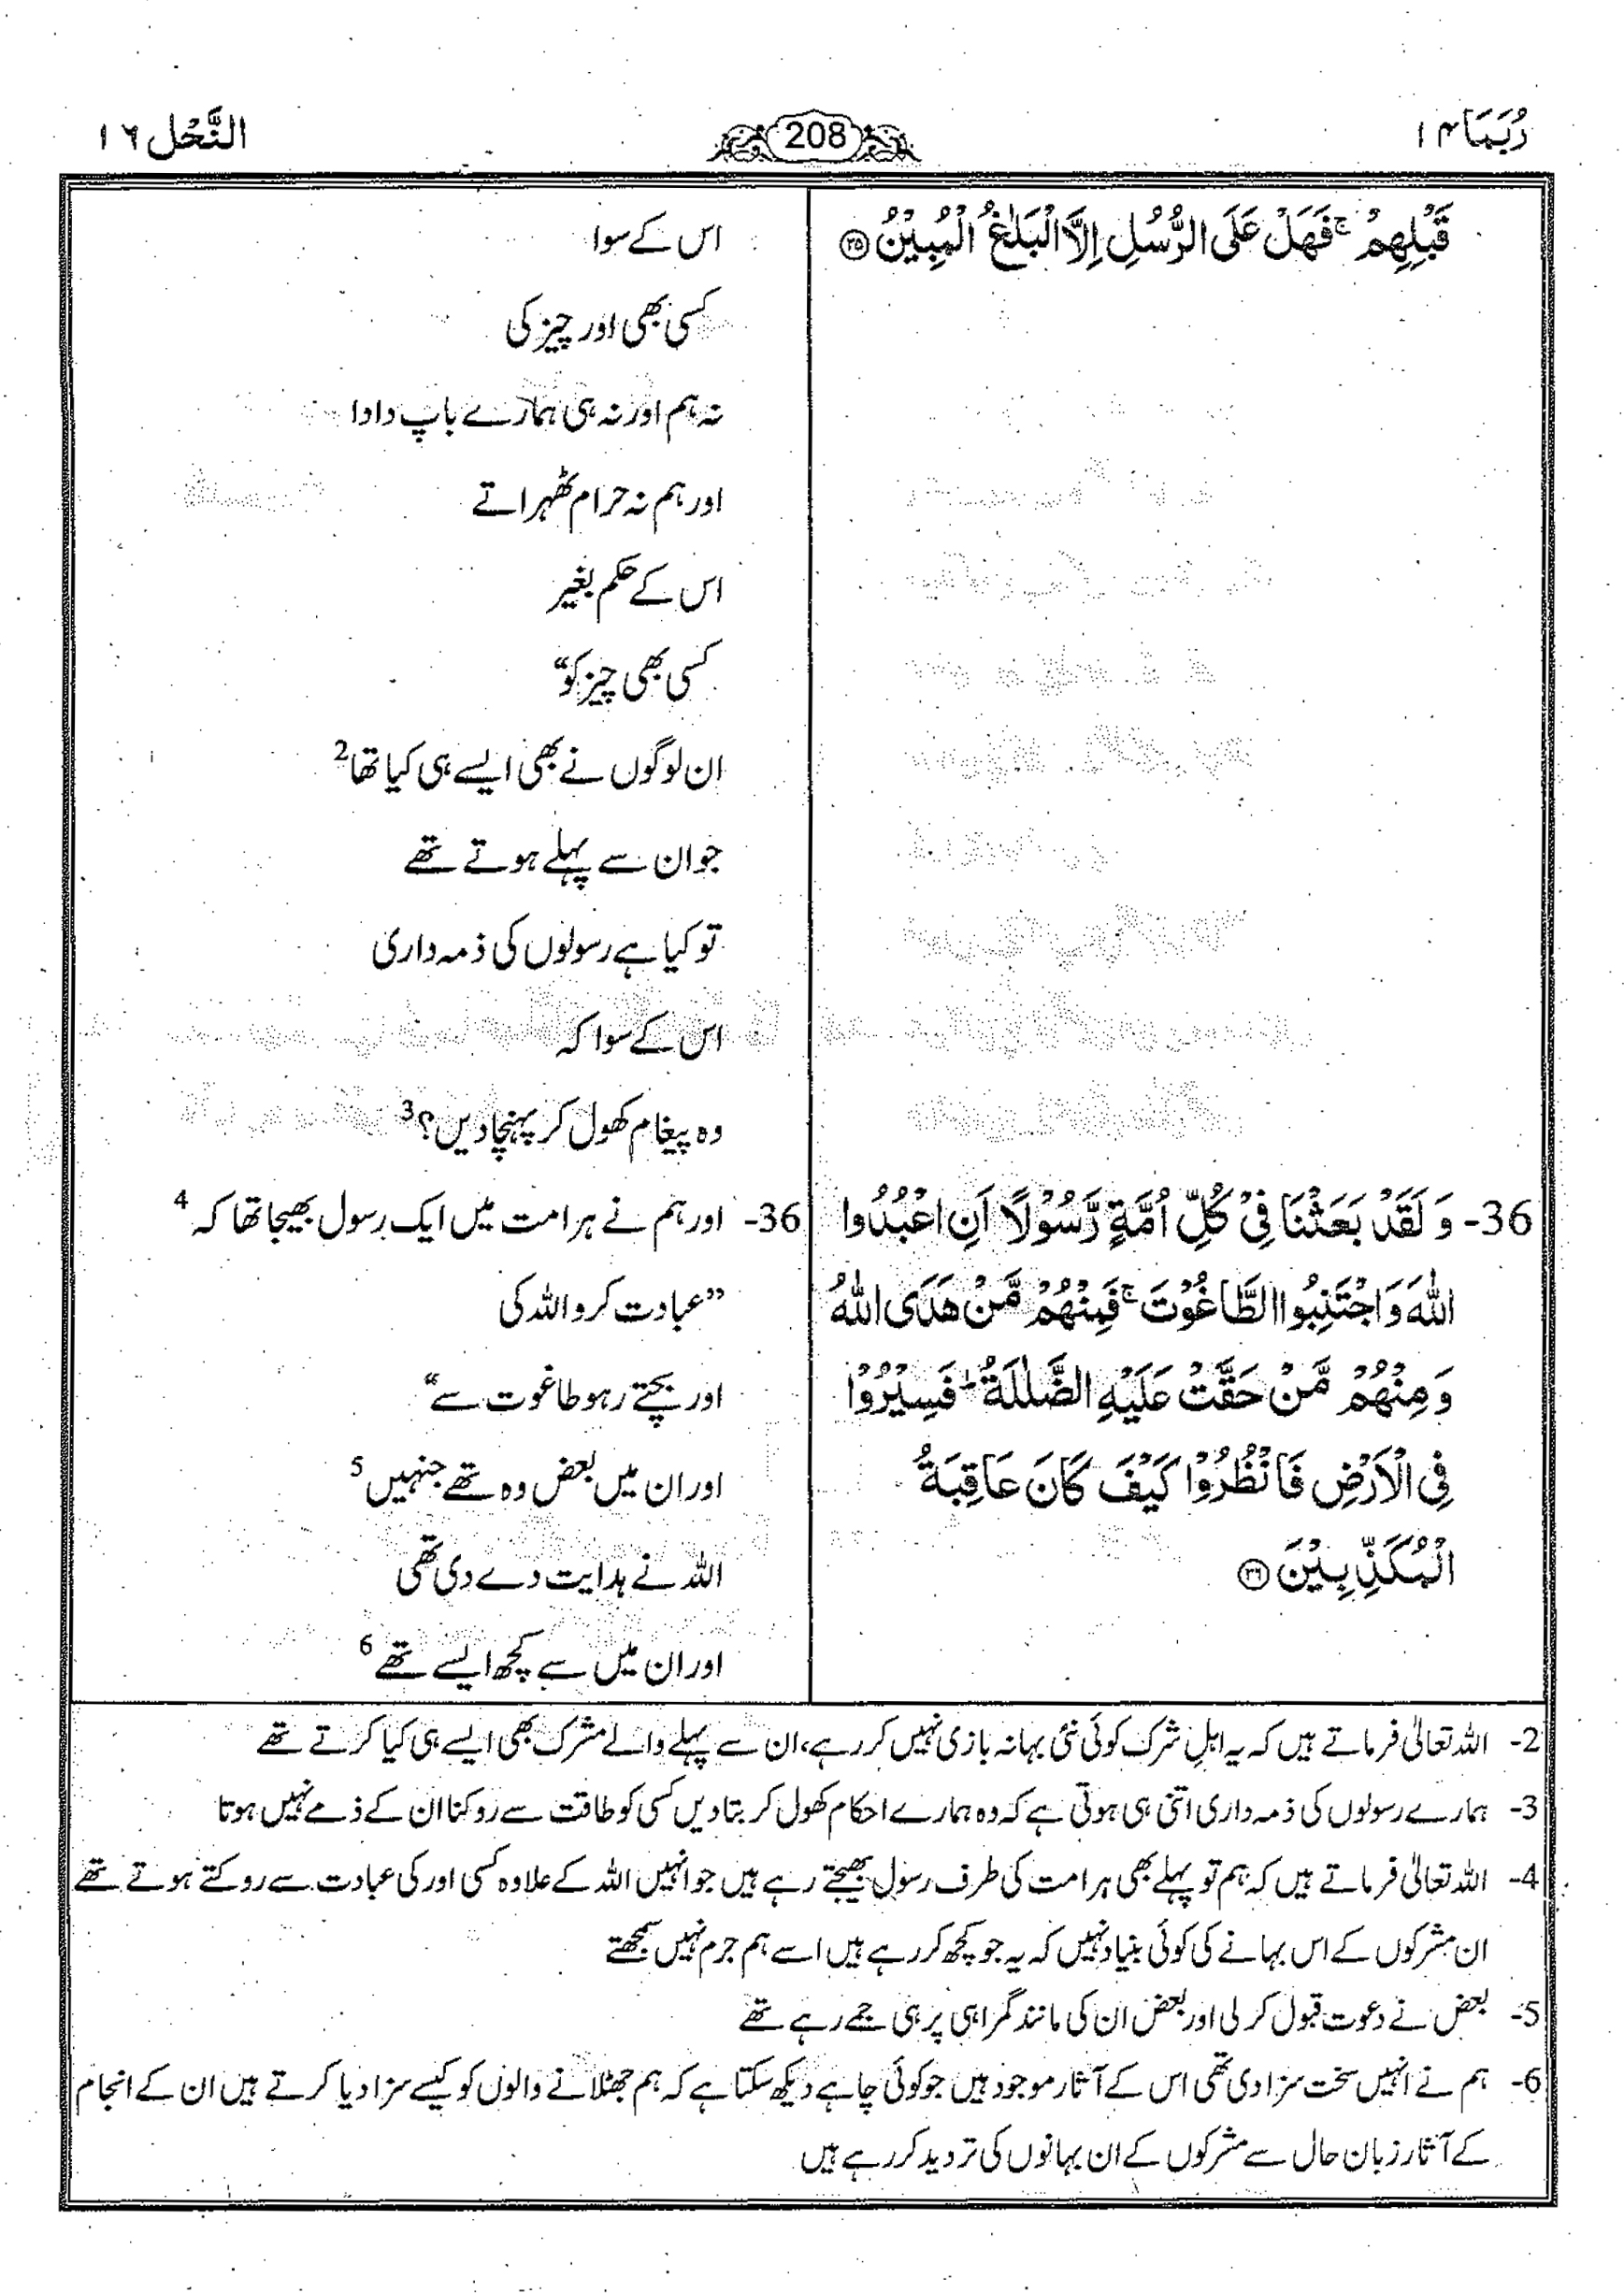 رُبَمَا ۱۴
208
النَّحْل ۱۶
قَبْلِهِمْ ۚ فَهَلْ عَلَى الرُّسُلِ اِلَّا الْبَلٰغُ الْمُبِيْنُ ۳۵
36- وَ لَقَدْ بَعَثْنَا فِيْ كُلِّ اُمَّةٍ رَّسُوْلًا اَنِ اعْبُدُوا
اللّٰهَ وَ اجْتَنِبُوا الطَّاغُوْتَ ۚ فَمِنْهُمْ مَّنْ هَدَى اللّٰهُ
وَ مِنْهُمْ مَّنْ حَقَّتْ عَلَيْهِ الضَّلٰلَةُ ؕ فَسِيْرُوْا
فِي الْاَرْضِ فَانْظُرُوْا كَيْفَ كَانَ عَاقِبَةُ
الْمُكَذِّبِيْنَ ۳۶
اس کے سوا
کسی بھی اور چیز کی
نہ ہم اور نہ ہی ہمارے باپ دادا
اور ہم نہ حرام ٹھہراتے
اس کے حکم بغیر
کسی بھی چیز کو“
ان لوگوں نے بھی ایسے ہی کیا تھا2
جو ان سے پہلے ہوتے تھے
تو کیا ہے رسولوں کی ذمہ داری
اس کے سوا کہ
وہ پیغام کھول کر پہنچا دیں؟3
36- اور ہم نے ہر امت میں ایک رسول بھیجا تھا کہ4
”عبادت کرو اللہ کی
اور بچتے رہو طاغوت سے“
اور ان میں بعض وہ تھے جنہیں5
اللہ نے ہدایت دے دی تھی
اور ان میں سے کچھ ایسے تھے6
2- اللہ تعالیٰ فرماتے ہیں کہ یہ اہلِ شرک کوئی نئی بہانہ بازی نہیں کر رہے، ان سے پہلے والے مشرک بھی ایسے ہی کیا کرتے تھے
3- ہمارے رسولوں کی ذمہ داری اتنی ہی ہوتی ہے کہ وہ ہمارے احکام کھول کر بتا دیں کسی کو طاقت سے روکنا ان کے ذمے نہیں ہوتا
4- اللہ تعالیٰ فرماتے ہیں کہ ہم تو پہلے بھی ہر امت کی طرف رسول بھیجتے رہے ہیں جو انہیں اللہ کے علاوہ کسی اور کی عبادت سے روکتے ہوتے تھے
ان مشرکوں کے اس بہانے کی کوئی بنیاد نہیں کہ یہ جو کچھ کر رہے ہیں اسے ہم جرم نہیں سمجھتے
5- بعض نے دعوت قبول کر لی اور بعض ان کی مانند گمراہی پر ہی جمے رہے تھے
6- ہم نے انہیں سخت سزا دی تھی اس کے آثار موجود ہیں جو کوئی چاہے دیکھ سکتا ہے کہ ہم جھٹلانے والوں کو کیسے سزا دیا کرتے ہیں ان کے انجام
کے آثار زبان حال سے مشرکوں کے ان بہانوں کی تردید کر رہے ہیں